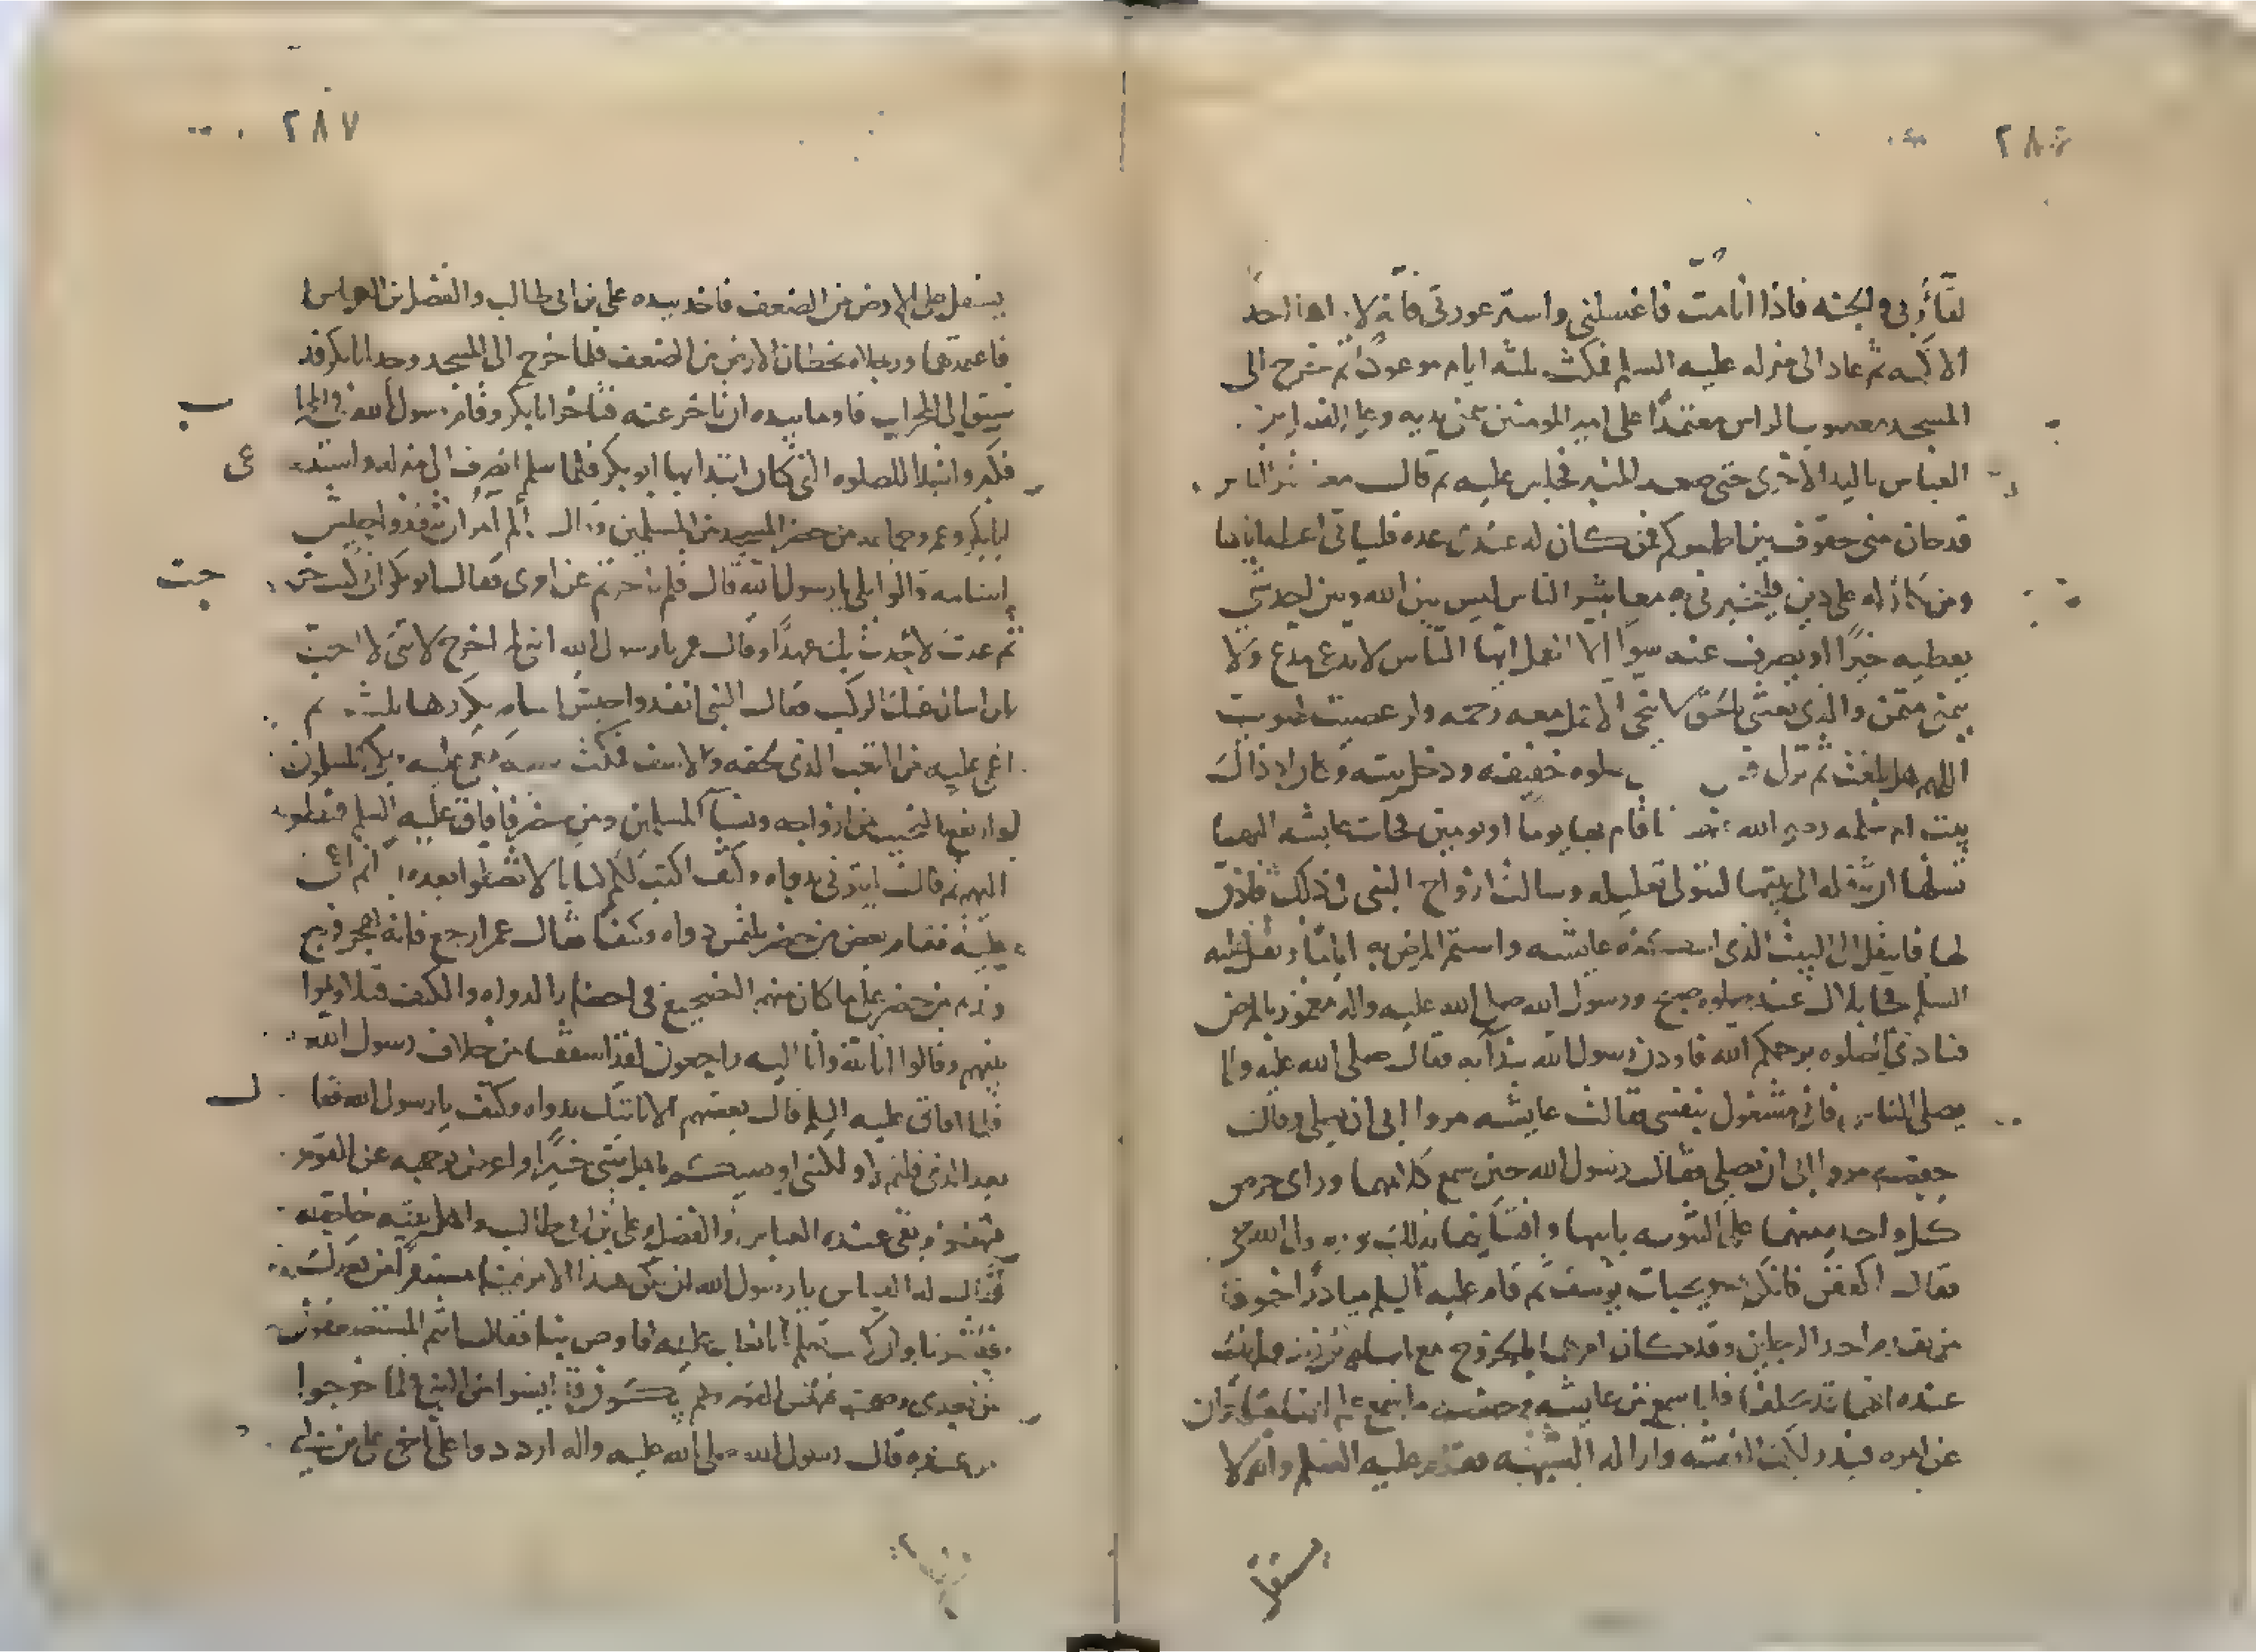 ٢٨٦
فاذا انا مت فاغسلني واستر عورتي فانه لا احد
الا اكمه ثم عاد الى منزله عليه السلم فمكث ثلثه ايام موعوكا ثم خرج الى
المسجد معصوب الراس معتمدا على امير المومنين بيمنى يديه وعلى الفضل بن
العباس باليد الاخرى حتى صعد المنبر فجلس عليه ثم قال معشر الناس
قد حان منى حقوف من بين اظهركم فمن كان له عندى عده فلياتى اعطه اياها
ومن كان له على دين فليخبرنى به معاشر الناس ليس بين الله وبين احد شى
يعطيه خيرا او يصرف عنه سوا الا العمل ايها الناس لا يدع مدع ولا
يتمنى متمن والذى بعثنى بالحق لا ينجى الا عمل معه رحمه ولو عصيت لهويت
اللهم هل بلغت ثم نزل صلوه خفيفه ودخل بيته وكان اذ ذاك
بيت ام سلمه رضى الله عنها فاقام بها يوما او يومين فجات عايشه اليها
تسلها ان تنقله الى بيتها لتتولى تعليله وسالت ازواج النبى فى ذلك فاذن
لها فانتقل الى البيت الذى اسكنه عايشه واستمر المرض به اياما وثقل عليه
السلم فجا بلال عند صلوه صبح ورسول الله صلى الله عليه واله مغمور بالمرض
فنادى الصلوه يرحمكم الله فاوذن رسول الله بندايه فقال صلى الله عليه واله
يصلى بالناس فانى مشغول بنفسى فقالت عايشه مروا ابى ان يصلى وقالت
حفصه مروا ابى ان يصلى فقال رسول الله حين سمع كلامهما وراى حرص
كل واحده منهما على التنويه بابيها وافتتانهما بذلك ورسول الله حى
فقال اكففن فانكن صويحبات يوسف ثم قام عليه السلم مبادرا خوفا
من تقدم احد الرجلين وقد كان امرهما بالخروج مع اسامه ولم يك
عنده انهما قد تخلفا فلما سمع من عايشه وحفصه ما سمع علم انهما متاخران
عن امره فبدر لكف الفتنه وازاله الشبهه فقام عليه السلم وانه لا
يستقل
٢٨٧
يستقل على الارض من الضعف فاخذ بيده على بن ابى طالب والفضل بن العباس
فاعتمدهما ورجلاه تخطان الارض من الضعف فلما خرج الى المسجد وجد ابا بكر قد
سبق الى المحراب فاوما بيده ان تاخر عنه فتاخر ابا بكر وقام رسول الله
فكبر وابتدا الصلوه التى كان ابتداها ابو بكر فلما سلم انصرف الى منزله واستدعى
ابا بكر وعمر وجماعه من حضر المسجد من المسلمين وقال الم امر ان تنفذوا جيش
اسامه قالوا بلى يا رسول الله قال فلم تاخرتم عن امرى فقال ابو بكر انى كنت خرجت
ثم عدت لاجدد بك عهدا وقال عمر يا رسول الله انى لم اخرج لانى لا احب
ان اسال عنك الركب فقال النبى انفذوا جيش اسامه يكررها ثلث ثم
اغمى عليه من التعب الذى لحقه والاسف فمكث مغمى عليه وبكى المسلمون
وارتفع النحيب من ازواجه ونسا المسلمين ومن حضر فافاق عليه السلم فنظر
اليهم ثم قال ايتونى بدواه وكتف اكتب لكم كتابا لا تضلوا بعده ثم اغمى
عليه فقام بعض من حضر يلتمس دواه وكتفا فقال عمر ارجع فانه يهجر فرجع
وندم من حضر على ما كان منهم التضجيع فى احضار الدواه والكتف فتلاوموا
بينهم وقالوا انا لله وانا اليه راجعون لقد اشفقنا من خلاف رسول الله
فلما افاق عليه السلم قال بعضهم الا ناتيك بدواه وكتف يا رسول الله فقال
بعد الذى قلتم لا ولكنى اوصيكم باهل بيتى خيرا واعرض بوجهه عن القوم
فنهضوا وبقى عنده العباس والفضل وعلى بن ابى طالب واهل بيته خاصه
فقال له العباس يا رسول الله ان يكن هذا الامر فينا مستقرا من بعدك
فبشرنا وان كنت تعلم انا نغلب عليه فاوص بنا فقال انتم المستضعفون
من بعدى وصمت فنهض القوم وهم يبكون قد ايسوا من النبى فلما خرجوا
من عنده قال رسول الله صلى الله عليه واله ارددوا على اخى على بن ابى